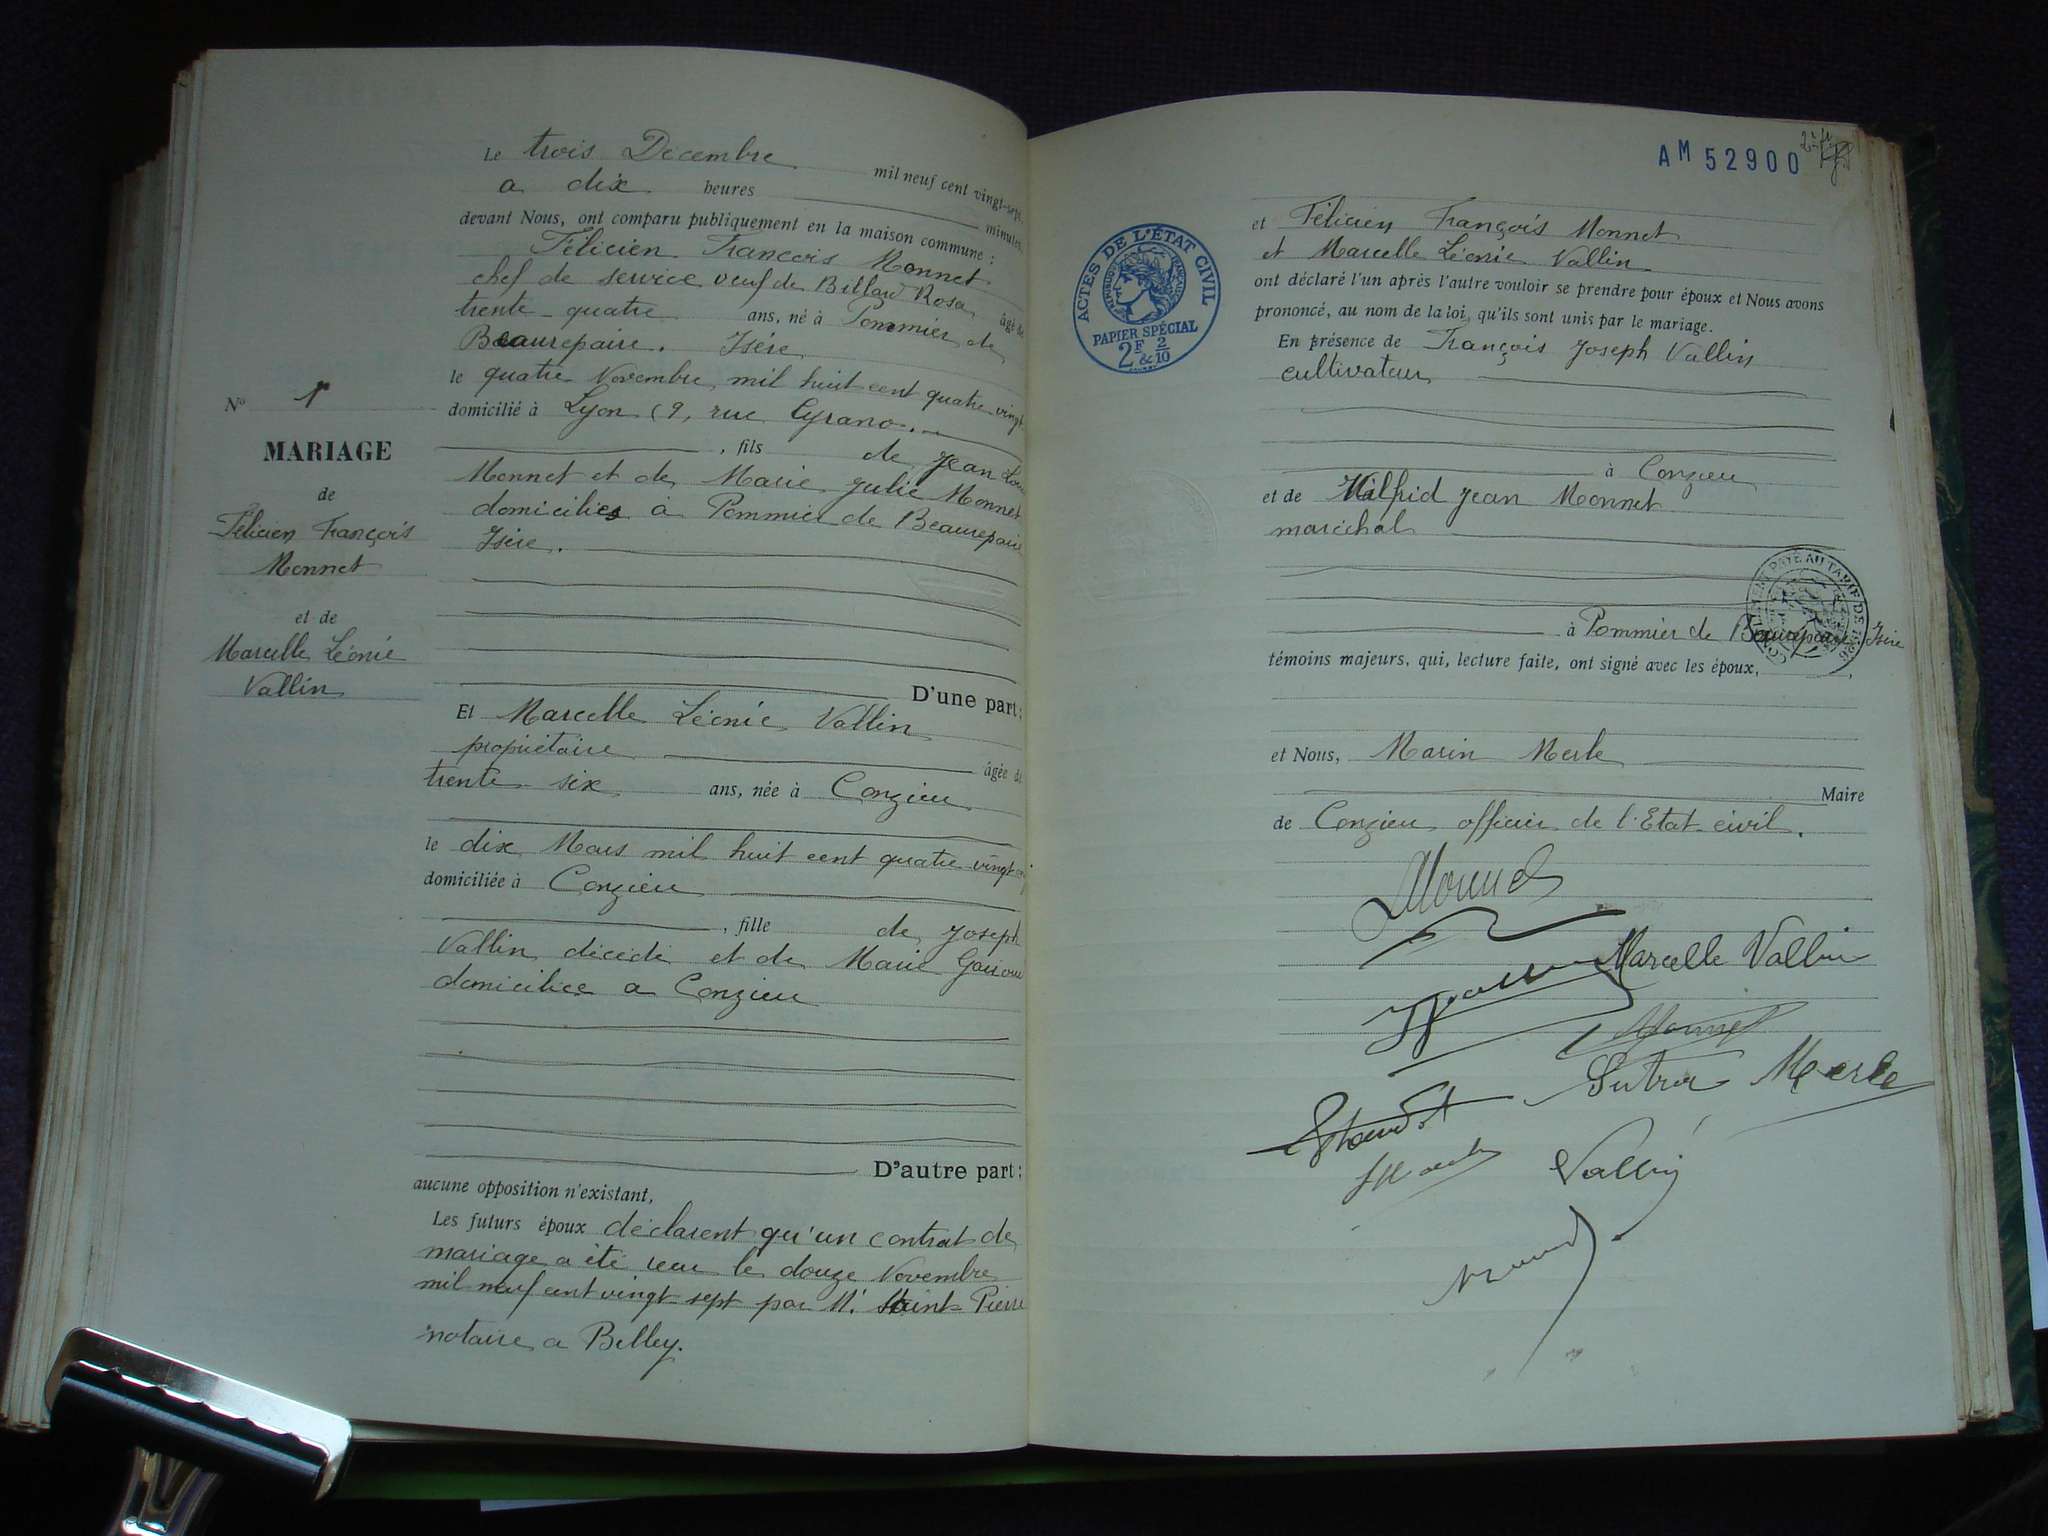 Le trois Décembre mil neuf cent vingt-sept,
a dix heures minutes
devant Nous, ont comparu publiquement en la maison commune :
Félicien François Monnet
chef de service veuf de Billard Rosa âgé de
trente-quatre ans, né à Pommier de
Beaurepaire. Isère
le quatre Novembre mil huit cent quatre vingt
domicilié à Lyon (9, rue Cyrano.
, fils de Jean
Monnet et de Marie Julie Monnet
domiciliés à Pommier de Beaurepaire
Isère.
D'une part :
Et Marcelle Léonie Vallin
propriétaire âgée de
trente six ans, née à Conzieu
le dix Mars mil huit cent quatre vingt
domiciliée à Conzieu
, fille de Joseph
Vallin décédé et de Marie
domiciliée a Conzieu
D'autre part :
aucune opposition n'existant,
Les futurs époux déclarent qu'un contrat de
mariage a été reçu le douze Novembre
mil neuf cent vingt sept par Mᵉ Saint-Pierre
notaire a Belley.
Nº 1
MARIAGE
de
Félicien François
Monnet
et de
Marcelle Léonie
Vallin
AM 52900
ACTES DE L'ÉTAT CIVIL
RÉPUBLIQUE FRANÇAISE
PAPIER SPÉCIAL
2F & 2/10
et Félicien François Monnet
et Marcelle Léonie Vallin
ont déclaré l'un après l'autre vouloir se prendre pour époux et Nous avons
prononcé, au nom de la loi, qu'ils sont unis par le mariage.
En présence de François Joseph Vallin
cultivateur
à Conzieu
et de Wilfrid Jean Monnet
maréchal
à Pommier de Beaurepaire Isère
témoins majeurs, qui, lecture faite, ont signé avec les époux,
et Nous, Marin Merle
Maire
de Conzieu officier de l'Etat civil.
Monnet
Marcelle Vallin
Monnet
Merle
Vallin